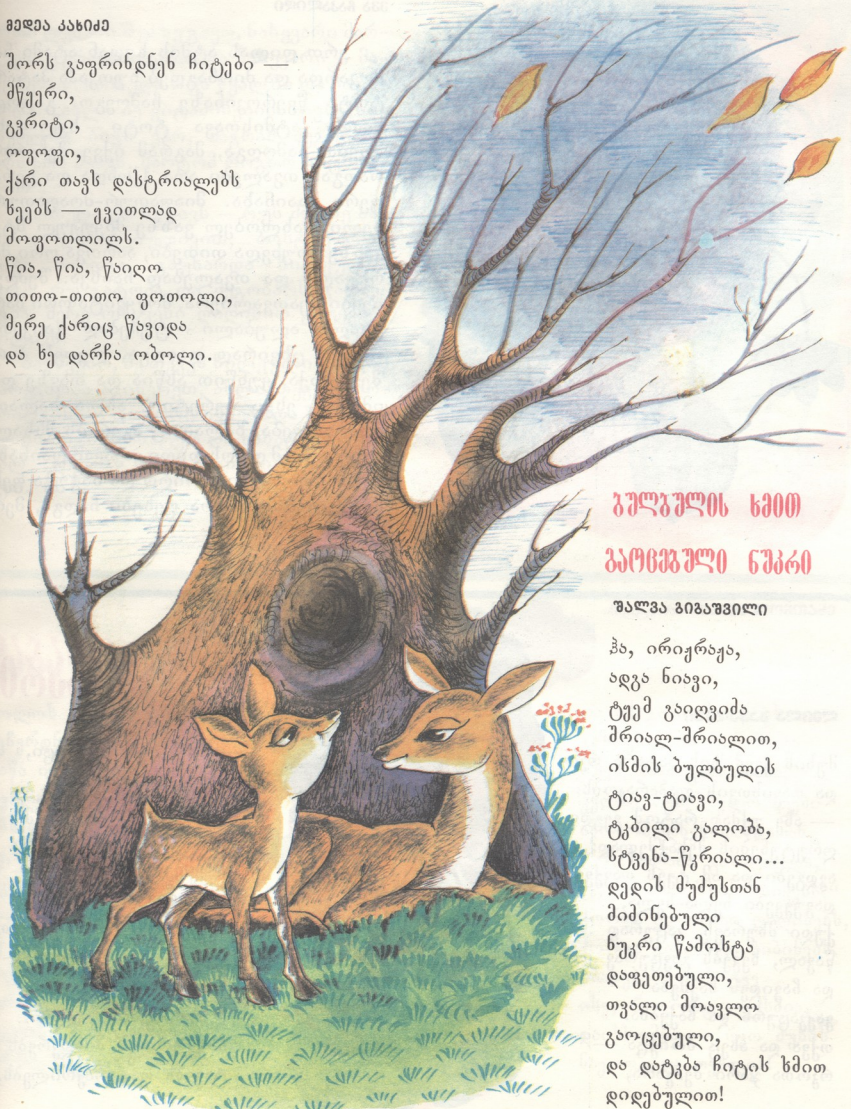 მედეა კახიძე
შორს გაფრინდნენ ჩიტები —
მწყერი,
გვრიტი,
ოფოფი,
ქარი თავს დასტრიალებს
ხეებს — ყვითლად
მოფოთლილს.
წია, წია, წაიღო
თითო-თითო ფოთოლი,
მერე ქარიც წავიდა
და ხე დარჩა ობოლი.
ბულბულის ხმით
გაოცებული ნუკრი
შალვა გიგაშვილი
ჰა, ირიჟრაჟა,
ადგა ნიავი,
ტყემ გაიღვიძა
შრიალ-შრიალით,
ისმის ბულბულის
ტიავ-ტიავი,
ტკბილი გალობა,
სტვენა-წკრიალი...
დედის ძუძუსთან
მიმინებული
ნუკრი წამოხტა
დაფეთებული,
თვალი მოავლო
გაოცებული,
და დატკბა ჩიტის ხმით
დიდებულით!